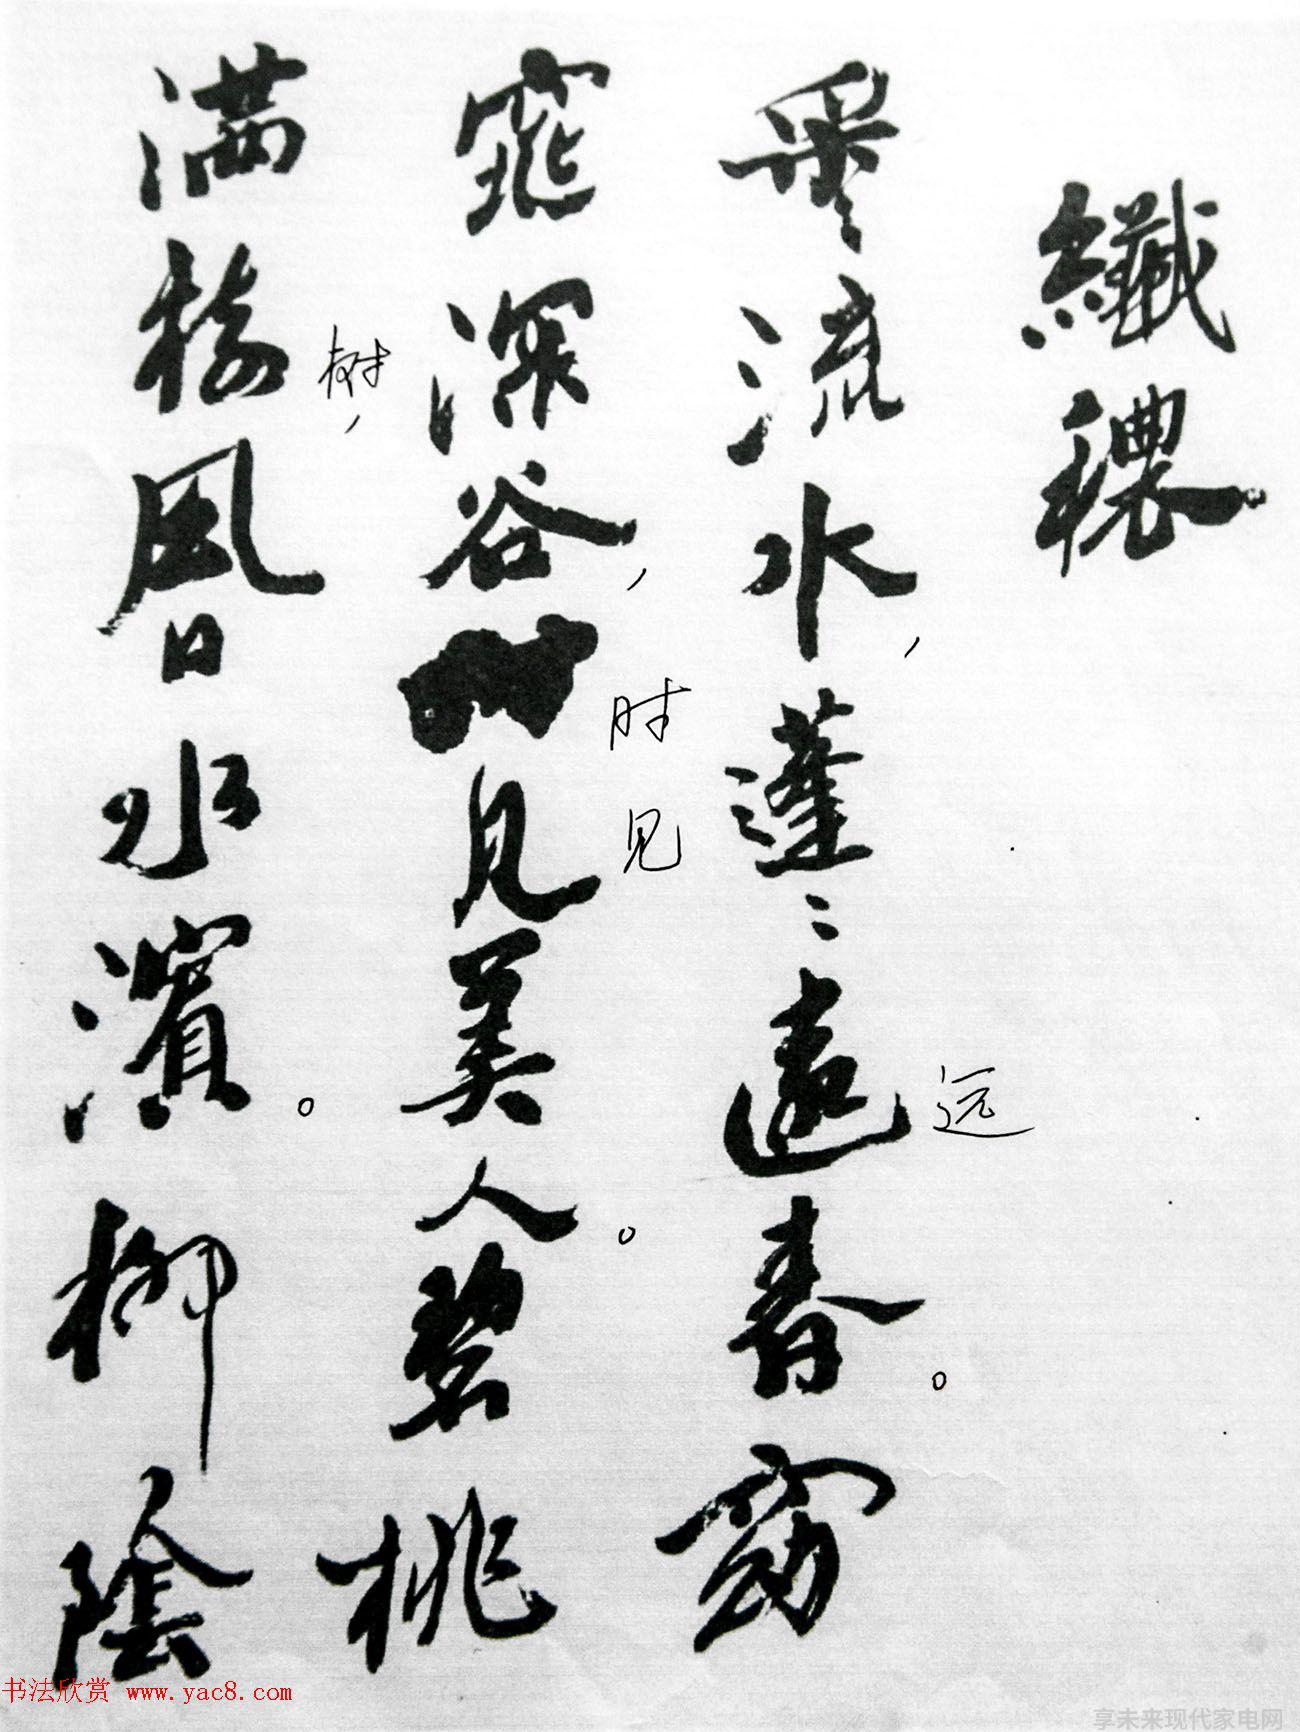 纖穠
采流水，蓬〻遠春。窈
远
窕深谷，見美人。碧桃
时见
满樹风日水濱。柳陰
树，
书法欣赏 www.yac8.com
享未来现代家电网